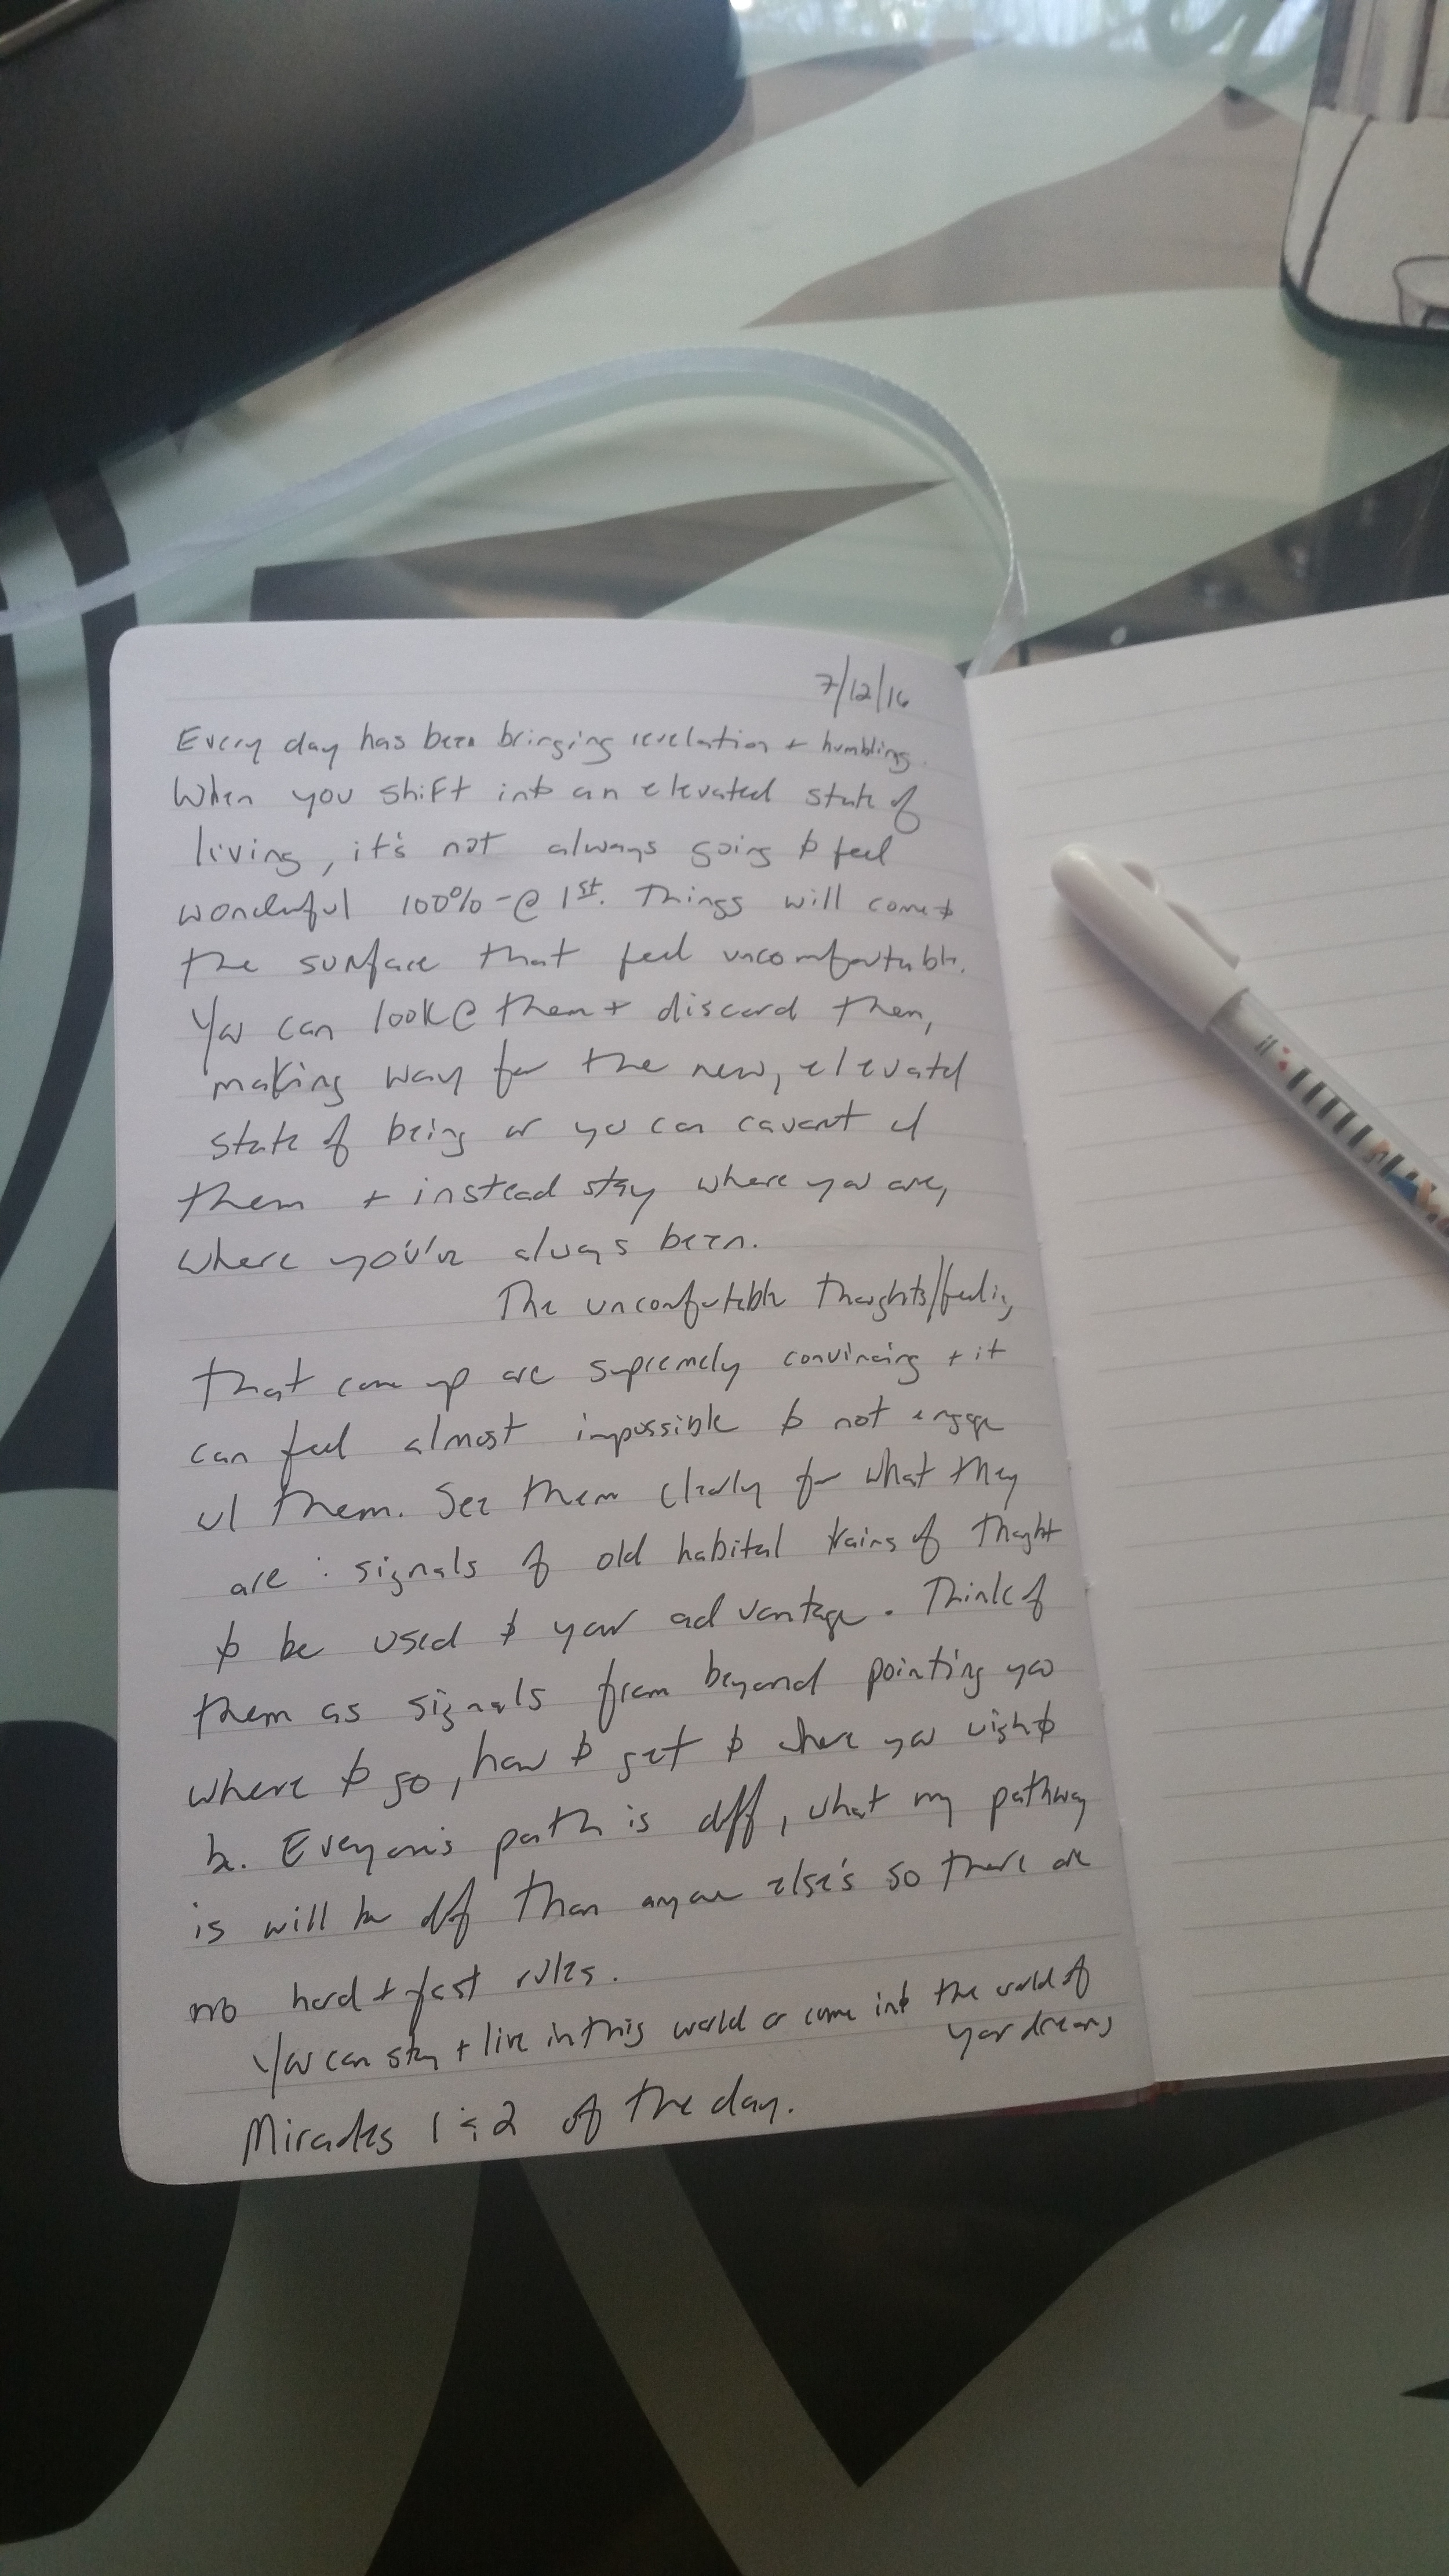 7/12/16
Every day has been bringing revelation + humbling.
When you shift into an elevated state of
living, it's not always going to feel
wonderful 100% - @ 1st. Things will come to
the surface that feel uncomfortable.
You can look @ them + discard them,
making way for the new, elevated
state of being or you can cavort w/
them + instead stay where you are,
where you've always been.
The uncomfortable thoughts/feelings
that come up are supremely convincing + it
can feel almost impossible to not engage
w/ them. See them clearly for what they
are: signals of old habital trains of thought
to be used to your advantage. Think of
them as signals from beyond pointing you
where to go, how to get to where you wish to
be. Everyone's path is diff, what my pathway
is will be diff than anyone else's so there are
no hard + fast rules.
You can stay + live in this world or come into the world of
your dreams
Miracles 1 & 2 of the day.